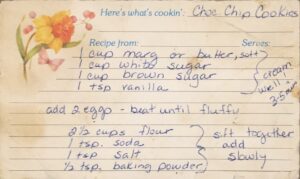 Here's what's cookin': Choc Chip Cookies
Recipe from: Serves:
1 cup marg or butter, soft
1 cup white sugar
1 cup brown sugar
1 tsp vanilla
cream
well
3-5 min
add 2 eggs - beat until fluffy
2 1/2 cups flour
1 tsp. soda
1 tsp salt
1/2 tsp. baking powder
sift together
add
slowly